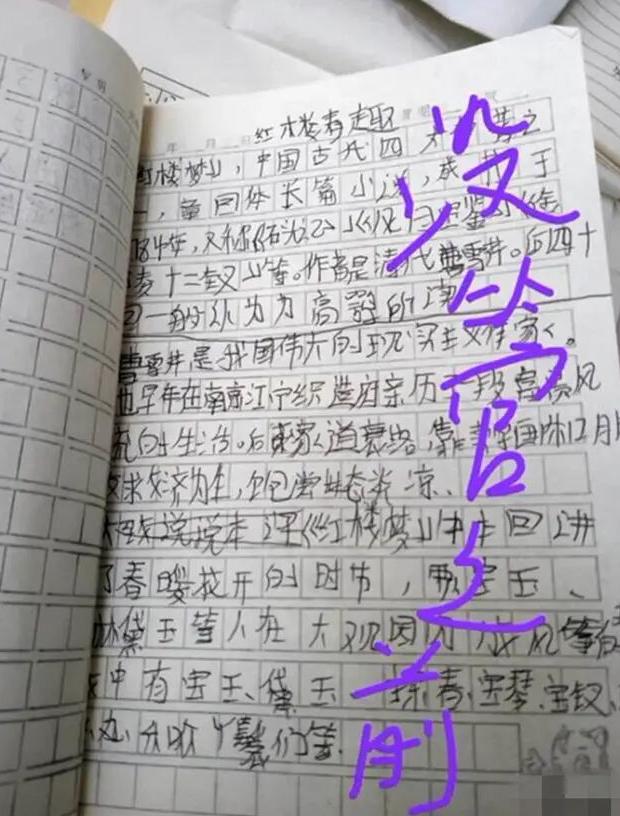 红楼春趣
红楼梦》,中国古代四大名著之
一,章回体长篇小说,成书于
784年,又称《石头记》《风月宝鉴》《金
陵十二钗》等。作者是清代曹雪芹。后四十
回一般认为为高鹗所
曹雪芹是我国伟大的现实主义作家。
他早年在南京江宁织造府亲历了一段富贵风
流的生活。后来家道衰落,靠
救济为生,饱尝世态炎凉.
说说本课《红楼梦》中本回讲
了春暖花开的时节,贾宝玉、
林黛玉等人在大观园内放风筝
文中有宝玉、黛玉、探春、宝琴、宝钗、
丫鬟们等.
没
官之前